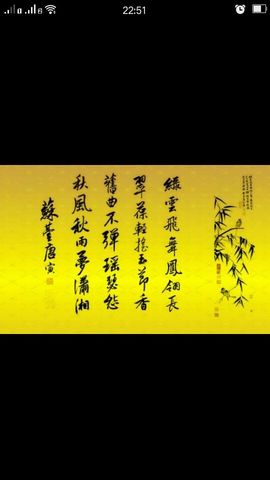 22:51
綠雲飛舞鳳翎長
翠葆輕摇玉節香
舊曲不彈瑶瑟怨
秋風秋雨夢瀟湘
蘇臺唐寅